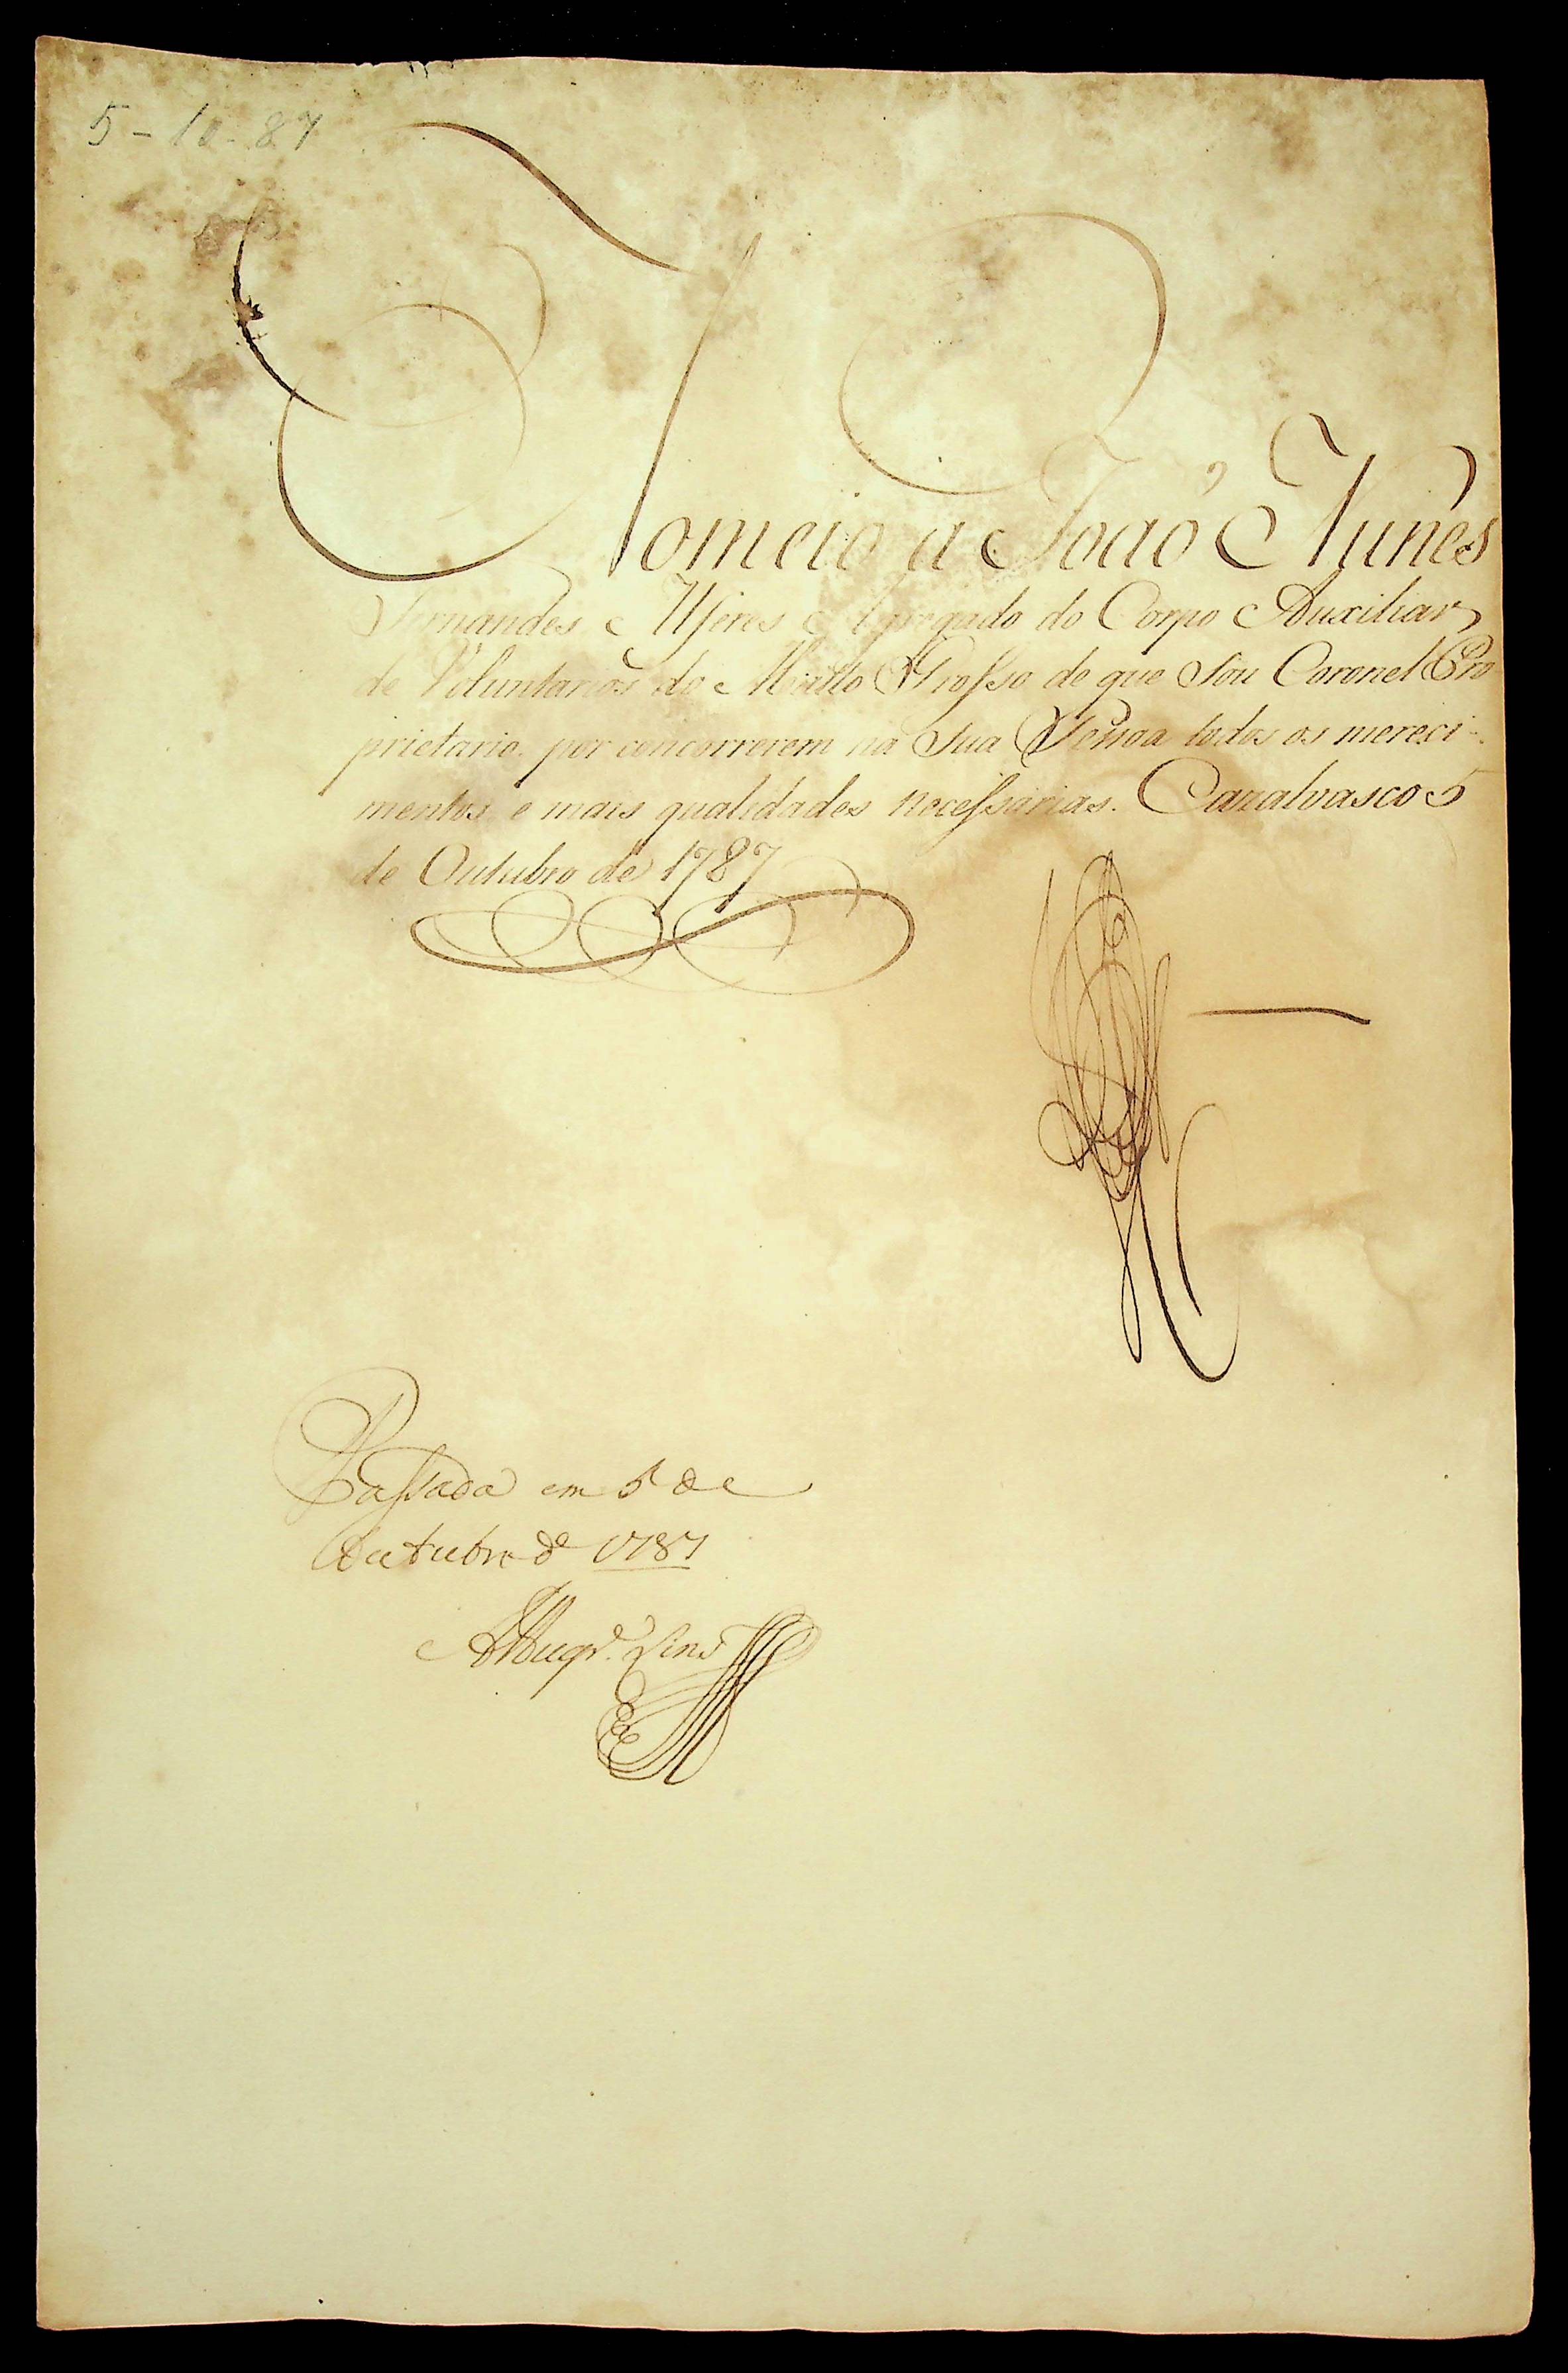 5-10-87
Nomeio a João Nunes
Fernandes Alferes Agregado do Corpo Auxiliar
de Voluntarios do Matto Grosso de que Sou Coronel Pro
prietario, por concorrerem na Sua Pessoa todos os mereci-
mentos e mais qualidades necessarias. Cazalvasco 5
de Outubro de 1787
Passada em 5 de
Outubro de 1787